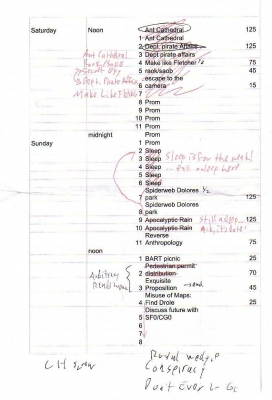 Saturday Noon Ant Cathedral 125
1 Ant Cathedral
2 Dept. pirate Affairs 125
3 Dept pirate affairs
4 Make like Fletcher 1/2 75
5 rack/saob 45
escape to the
6 camera 15
7
8 Prom
9 Prom
10 Prom
11 Prom
midnight Prom
Sunday 1 Prom
2 Sleep
3 Sleep
4 Sleep
5 Sleep
6 Sleep
Spiderweb Dolores 1/2
7 park 125
Spiderweb Dolores
8 park
9 Apocalyptic Rain 125
10 Apocalyptic Rain 125
Reverse
11 Anthropology 75
noon
1 BART picnic 25
Pedestrian permit
2 distribution 70
Exquisite
3 Proposition 45
Misuse of Maps:
4 Find Drole 25
Discuss future with
5 SF0/CG0
6
7
8
Ant Cathedral
Dept. Pirate Affairs
Make Like Fletcher
Sleep is for the weak!
asleep here
Still asleep
Arbitrary
Conspiracy
Dont Ever